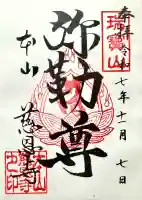 奉拝
令和七年十一月七日
瑞寶山
弥勒尊
本山
慈恩寺